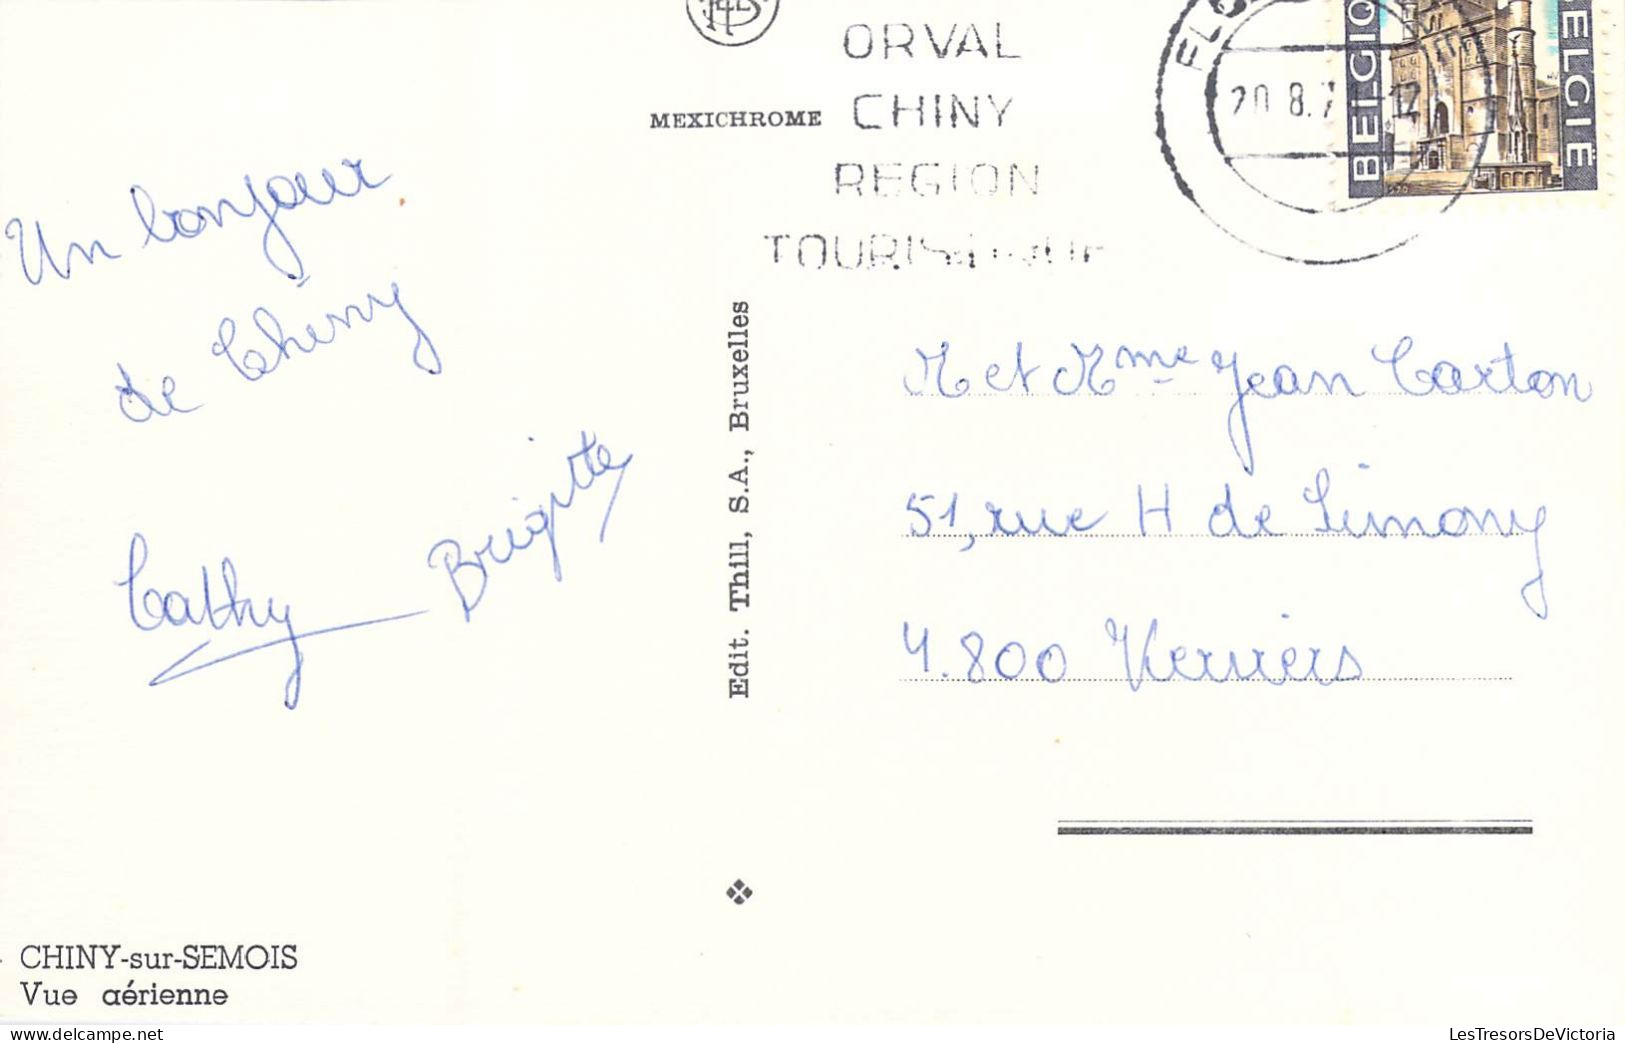 ORVAL
CHINY
REGION
MEXICHROME
20.8.7
12
BELGIË
Un bonjour
de Chiny
Cathy Brigitte
Edit. Thill, S.A., Bruxelles
M et Mme Jean Carton
51, rue H de Limony
4.800 Verviers
CHINY-sur-SEMOIS
Vue aérienne
LesTresorsDeVictoria